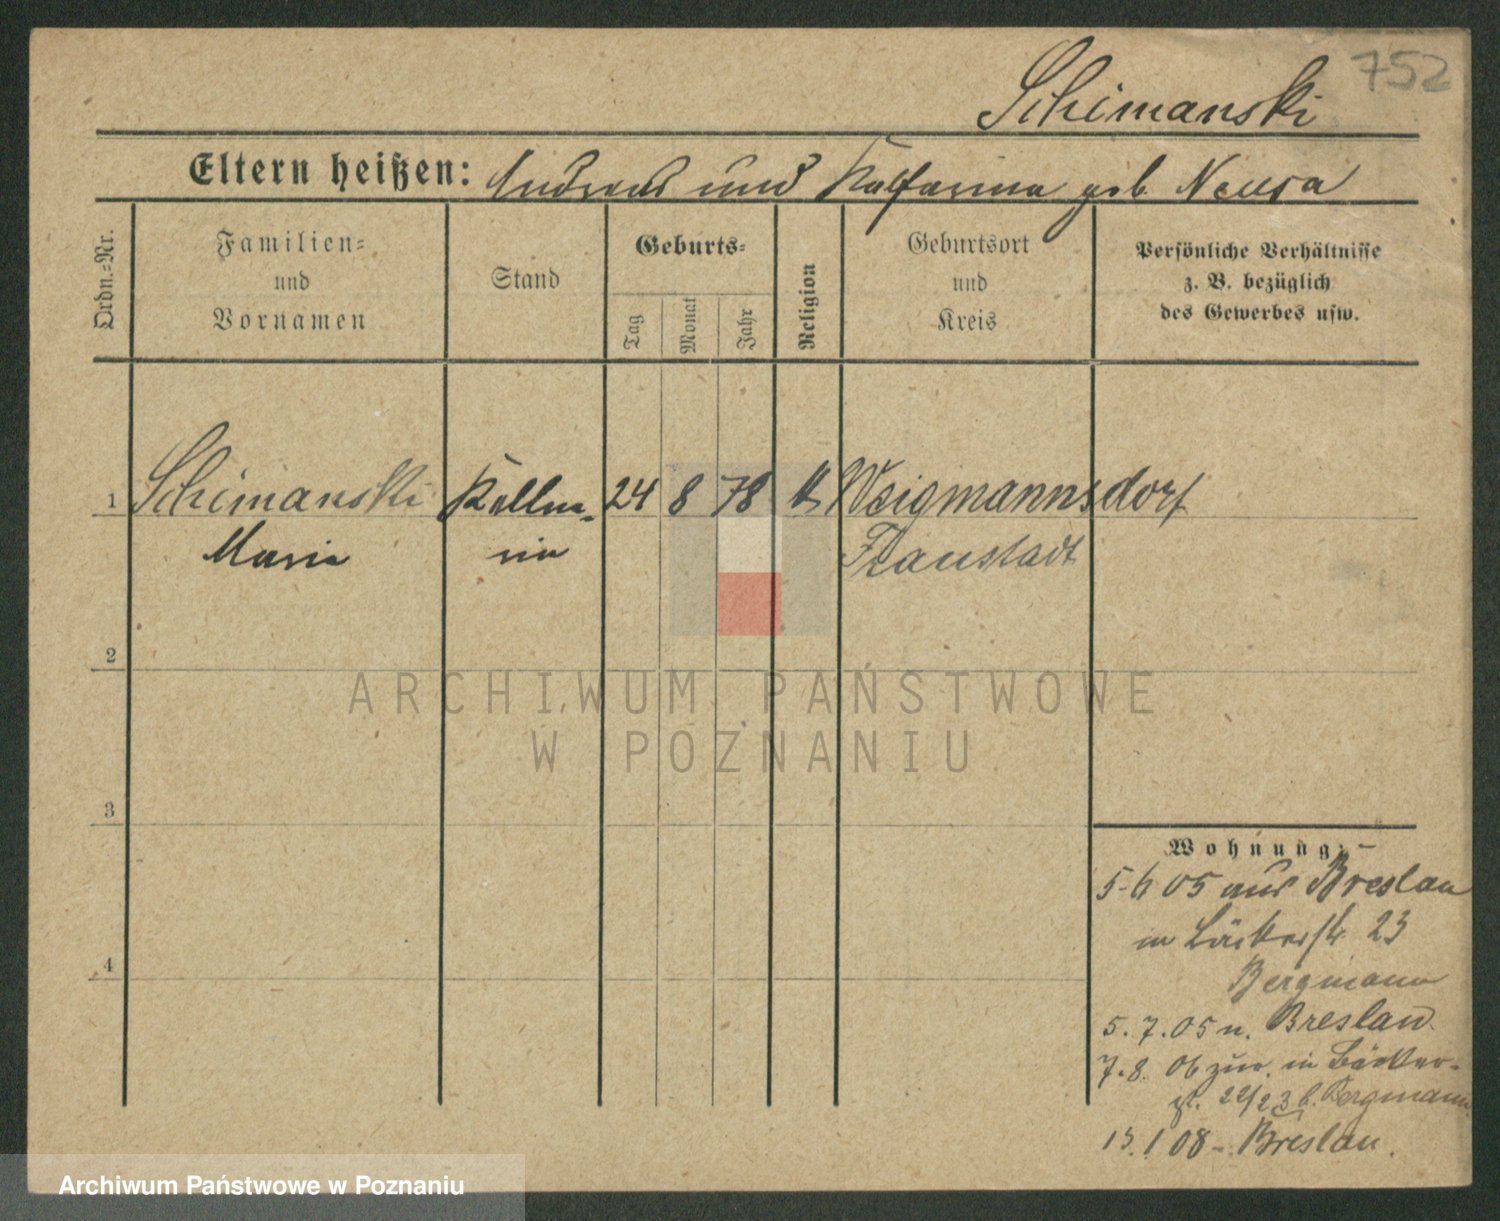 752
Schimanski
Eltern heißen: Andreas und Katharina geb Neusa
Ordn.-Nr.
Familien-
und
Vornamen
Stand
Geburts-
Tag
Monat
Jahr
Religion
Geburtsort
und
Kreis
Persönliche Verhältnisse
z. B. bezüglich
des Gewerbes usw.
1 Schimanski Kellne- 24 8 78 k Weigmannsdorf
Maria rin Fraustadt
2
3
4
ARCHIWUM PAŃSTWOWE
W POZNANIU
Wohnung:
5-6 05 aus Breslau
in Bäckerstr 23
Bergmann
5.7.05 n. Breslau.
7.8. 06 zur. in Bäcker-
st. 22/23 b. Bergmann
13.1 08 - Breslau.
Archiwum Państwowe w Poznaniu